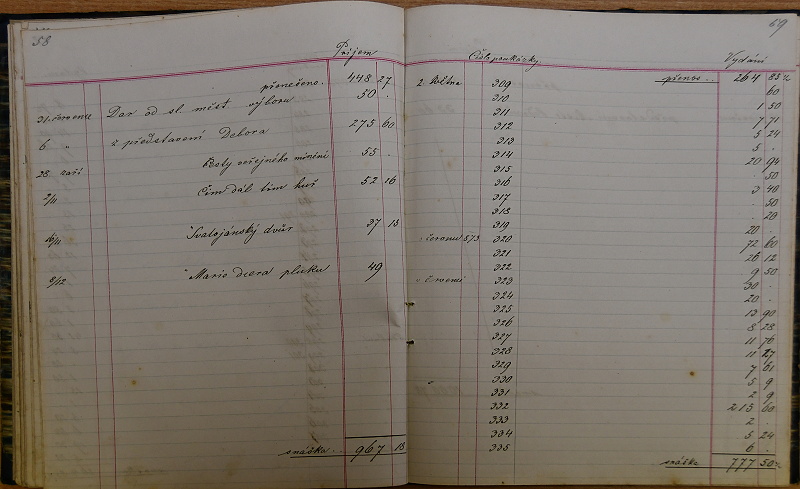 58
Příjem
přenešeno. 448 27
31. července Dar od sl. měst. výboru 50 .
6 " z představení Debora 275 60
28. září Besty veřejného mínění 55 .
2/11 Čím dál tím huř 52 16
16/11 "Svatojánský dvůr 37 18
9/12 "Marie dcera pluku 49
snáška .. 967 18
69
Číslo poukázky. Vydání
přenos .. 264 85
z Května 309 60
310 1 50
311 7 71
312 5 24
313 5 .
314 20 94
315 . 50
316 3 40
317 . 50
318 . 20
319 20 .
" červnu 573 320 72 60
321 26 12
322 9 50
" červenci 323 30 .
324 20 .
325 13 90
326 8 28
327 11 76
328 11 27
329 7 61
330 5 9
331 2 9
332 213 60
333 2 .
334 5 24
335 6 .
snáška 777 50